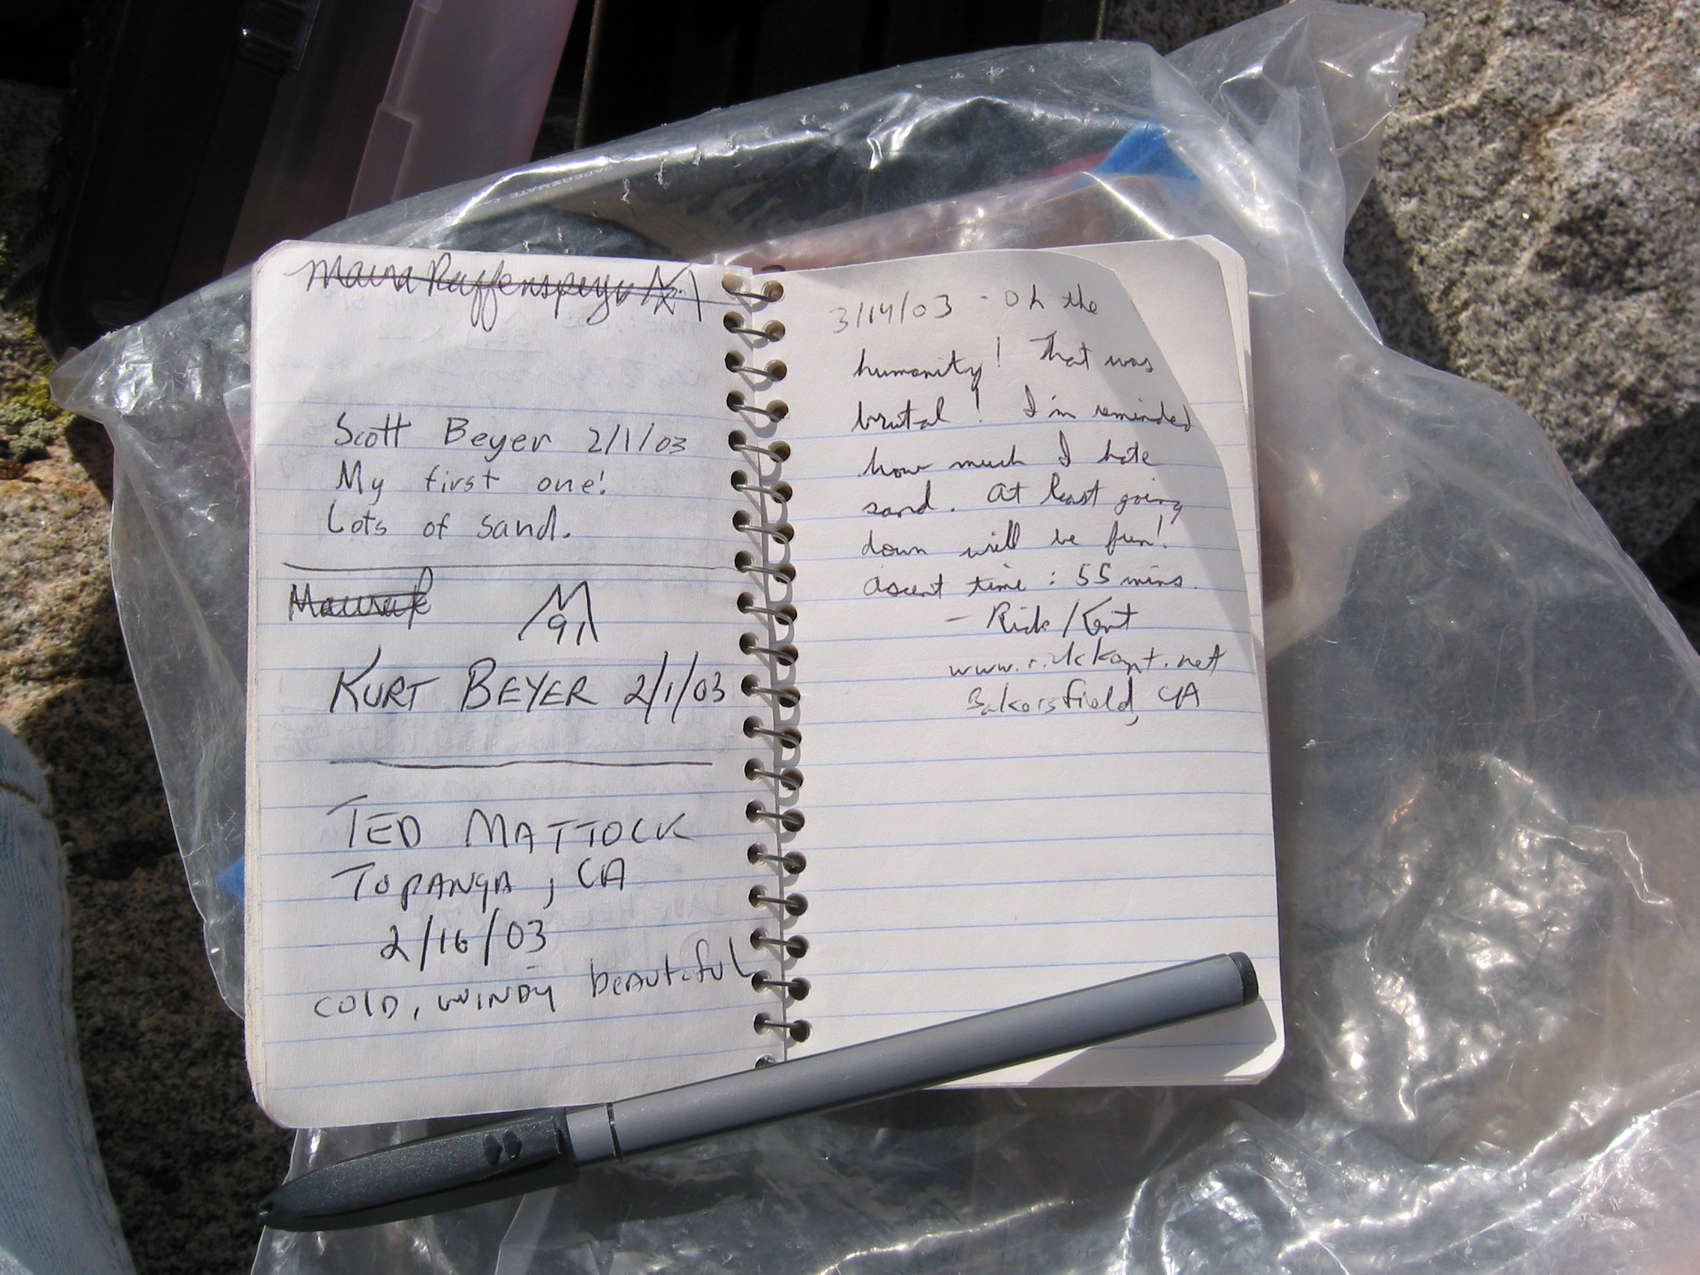 Scott Beyer 2/1/03
My first one!
Lots of sand.
KURT BEYER 2/1/03
TED MATTOCK
TOPANGA, CA
2/16/03
COLD, WINDY beautiful
3/14/03 - Oh the
humanity! That was
brutal! I'm reminded
how much I hate
sand. At least going
down will be fun!
ascent time: 55 mins.
- Rick Kent
www.rickkent.net
Bakersfield, CA
PAPERMATE